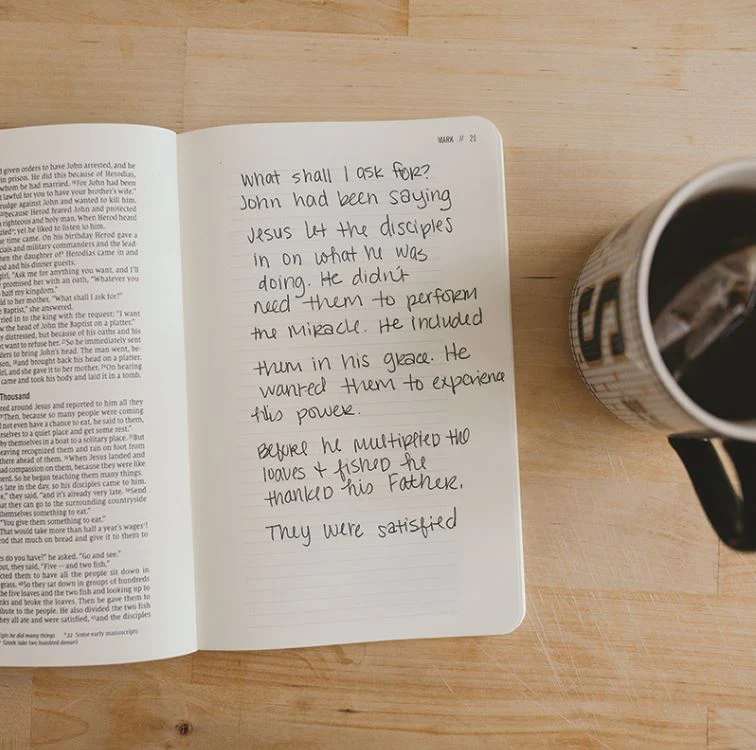 d given orders to have John arrested, and he
in prison. He did this because of Herodias,
whom he had married. ¹⁸For John had been
lawful for you to have your brother's wife."
rudge against John and wanted to kill him.
²⁰because Herod feared John and protected
righteous and holy man. When Herod heard
zled; yet he liked to listen to him.
time came. On his birthday Herod gave a
cials and military commanders and the lead-
hen the daughter of Herodias came in and
od and his dinner guests.
girl, "Ask me for anything you want, and I'll
promised her with an oath, "Whatever you
half my kingdom."
id to her mother, "What shall I ask for?"
Baptist," she answered.
rried in to the king with the request: "I want
w the head of John the Baptist on a platter."
y distressed, but because of his oaths and his
t want to refuse her. ²⁷So he immediately sent
ders to bring John's head. The man went, be-
son, ²⁸and brought back his head on a platter.
irl, and she gave it to her mother. ²⁹On hearing
came and took his body and laid it in a tomb.
Thousand
red around Jesus and reported to him all they
³¹Then, because so many people were coming
not even have a chance to eat, he said to them,
rselves to a quiet place and get some rest."
by themselves in a boat to a solitary place. ³³But
eaving recognized them and ran on foot from
there ahead of them. ³⁴When Jesus landed and
ad compassion on them, because they were like
herd. So he began teaching them many things.
s late in the day, so his disciples came to him.
e," they said, "and it's already very late. ³⁶Send
at they can go to the surrounding countryside
themselves something to eat."
"You give them something to eat."
That would take more than half a year's wages!
end that much on bread and give it to them to
s do you have?" he asked. "Go and see."
out, they said, "Five — and two fish."
cted them to have all the people sit down in
grass. ⁴⁰So they sat down in groups of hundreds
the five loaves and the two fish and looking up to
nks and broke the loaves. Then he gave them to
ibute to the people. He also divided the two fish
hey all ate and were satisfied, ⁴³and the disciples
ipts he did many things ²² Some early manuscripts
Greek take two hundred denarii
MARK // 21
What shall I ask for?
John had been saying
Jesus let the disciples
in on what he was
doing. He didn't
need them to perform
the miracle. He included
them in his grace. He
wanted them to experience
this power.
Before he multiplied the
loaves + fished he
thanked his Father.
They were satisfied
S